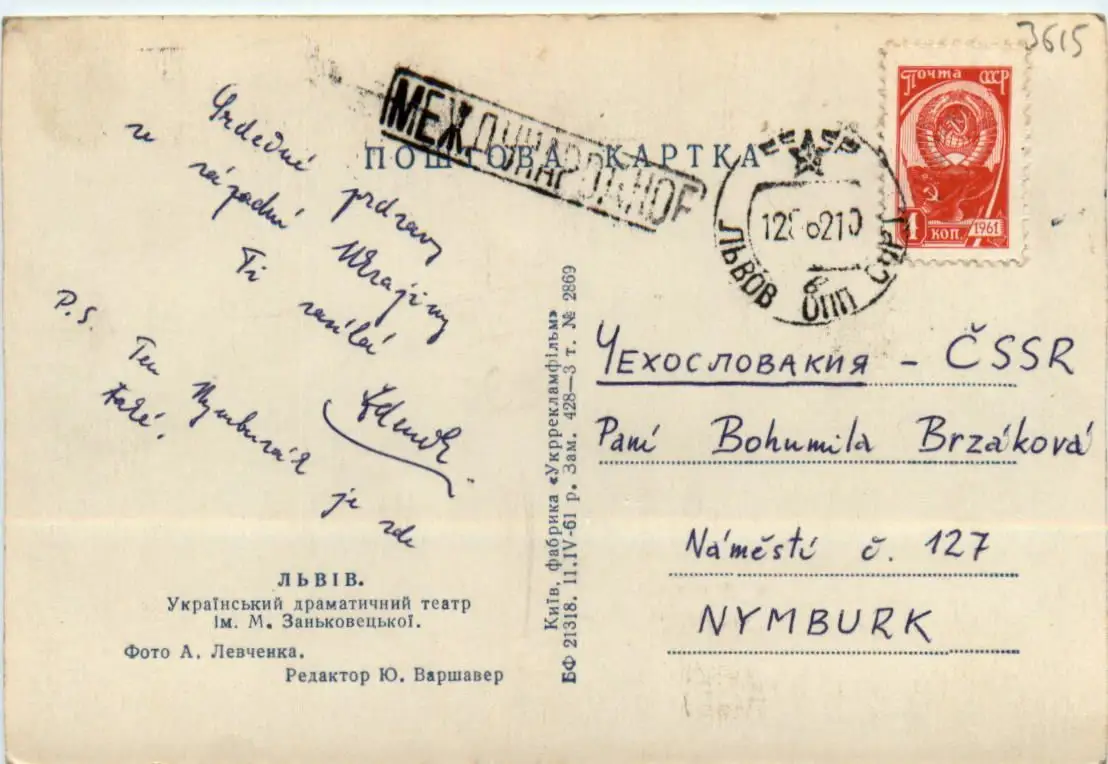 3615
Почта СССР
4 коп. 1961
МЕЖДУНАРОДНОЕ
ПОШТОВА КАРТКА
ЛЬВОВ
Srdečné pozdravy
z západní Ukrajiny
Ti zasílá
Zdeněk
P.S. Ten Nymburák je zde
také.
ЛЬВІВ.
Український драматичний театр
ім. М. Заньковецької.
Фото А. Левченка.
Редактор Ю. Варшавер
Київ, фабрика «Укррекламфільм»
БФ 21318. 11.IV-61 р. Зам. 428—3 т. № 2869
Чехословакия - ČSSR
Paní Bohumila Brzáková
Náměstí č. 127
NYMBURK